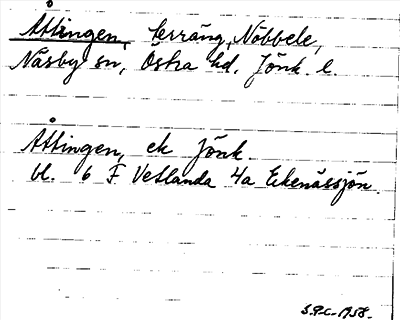 Åttingen, terräng, Nöbbele,
Näsby sn, Östra hd. Jönk. l.
Åttingen, ek Jönk.
bl. 6 F Vetlanda 4a Ekenässjön.
S.P.C. 1958.